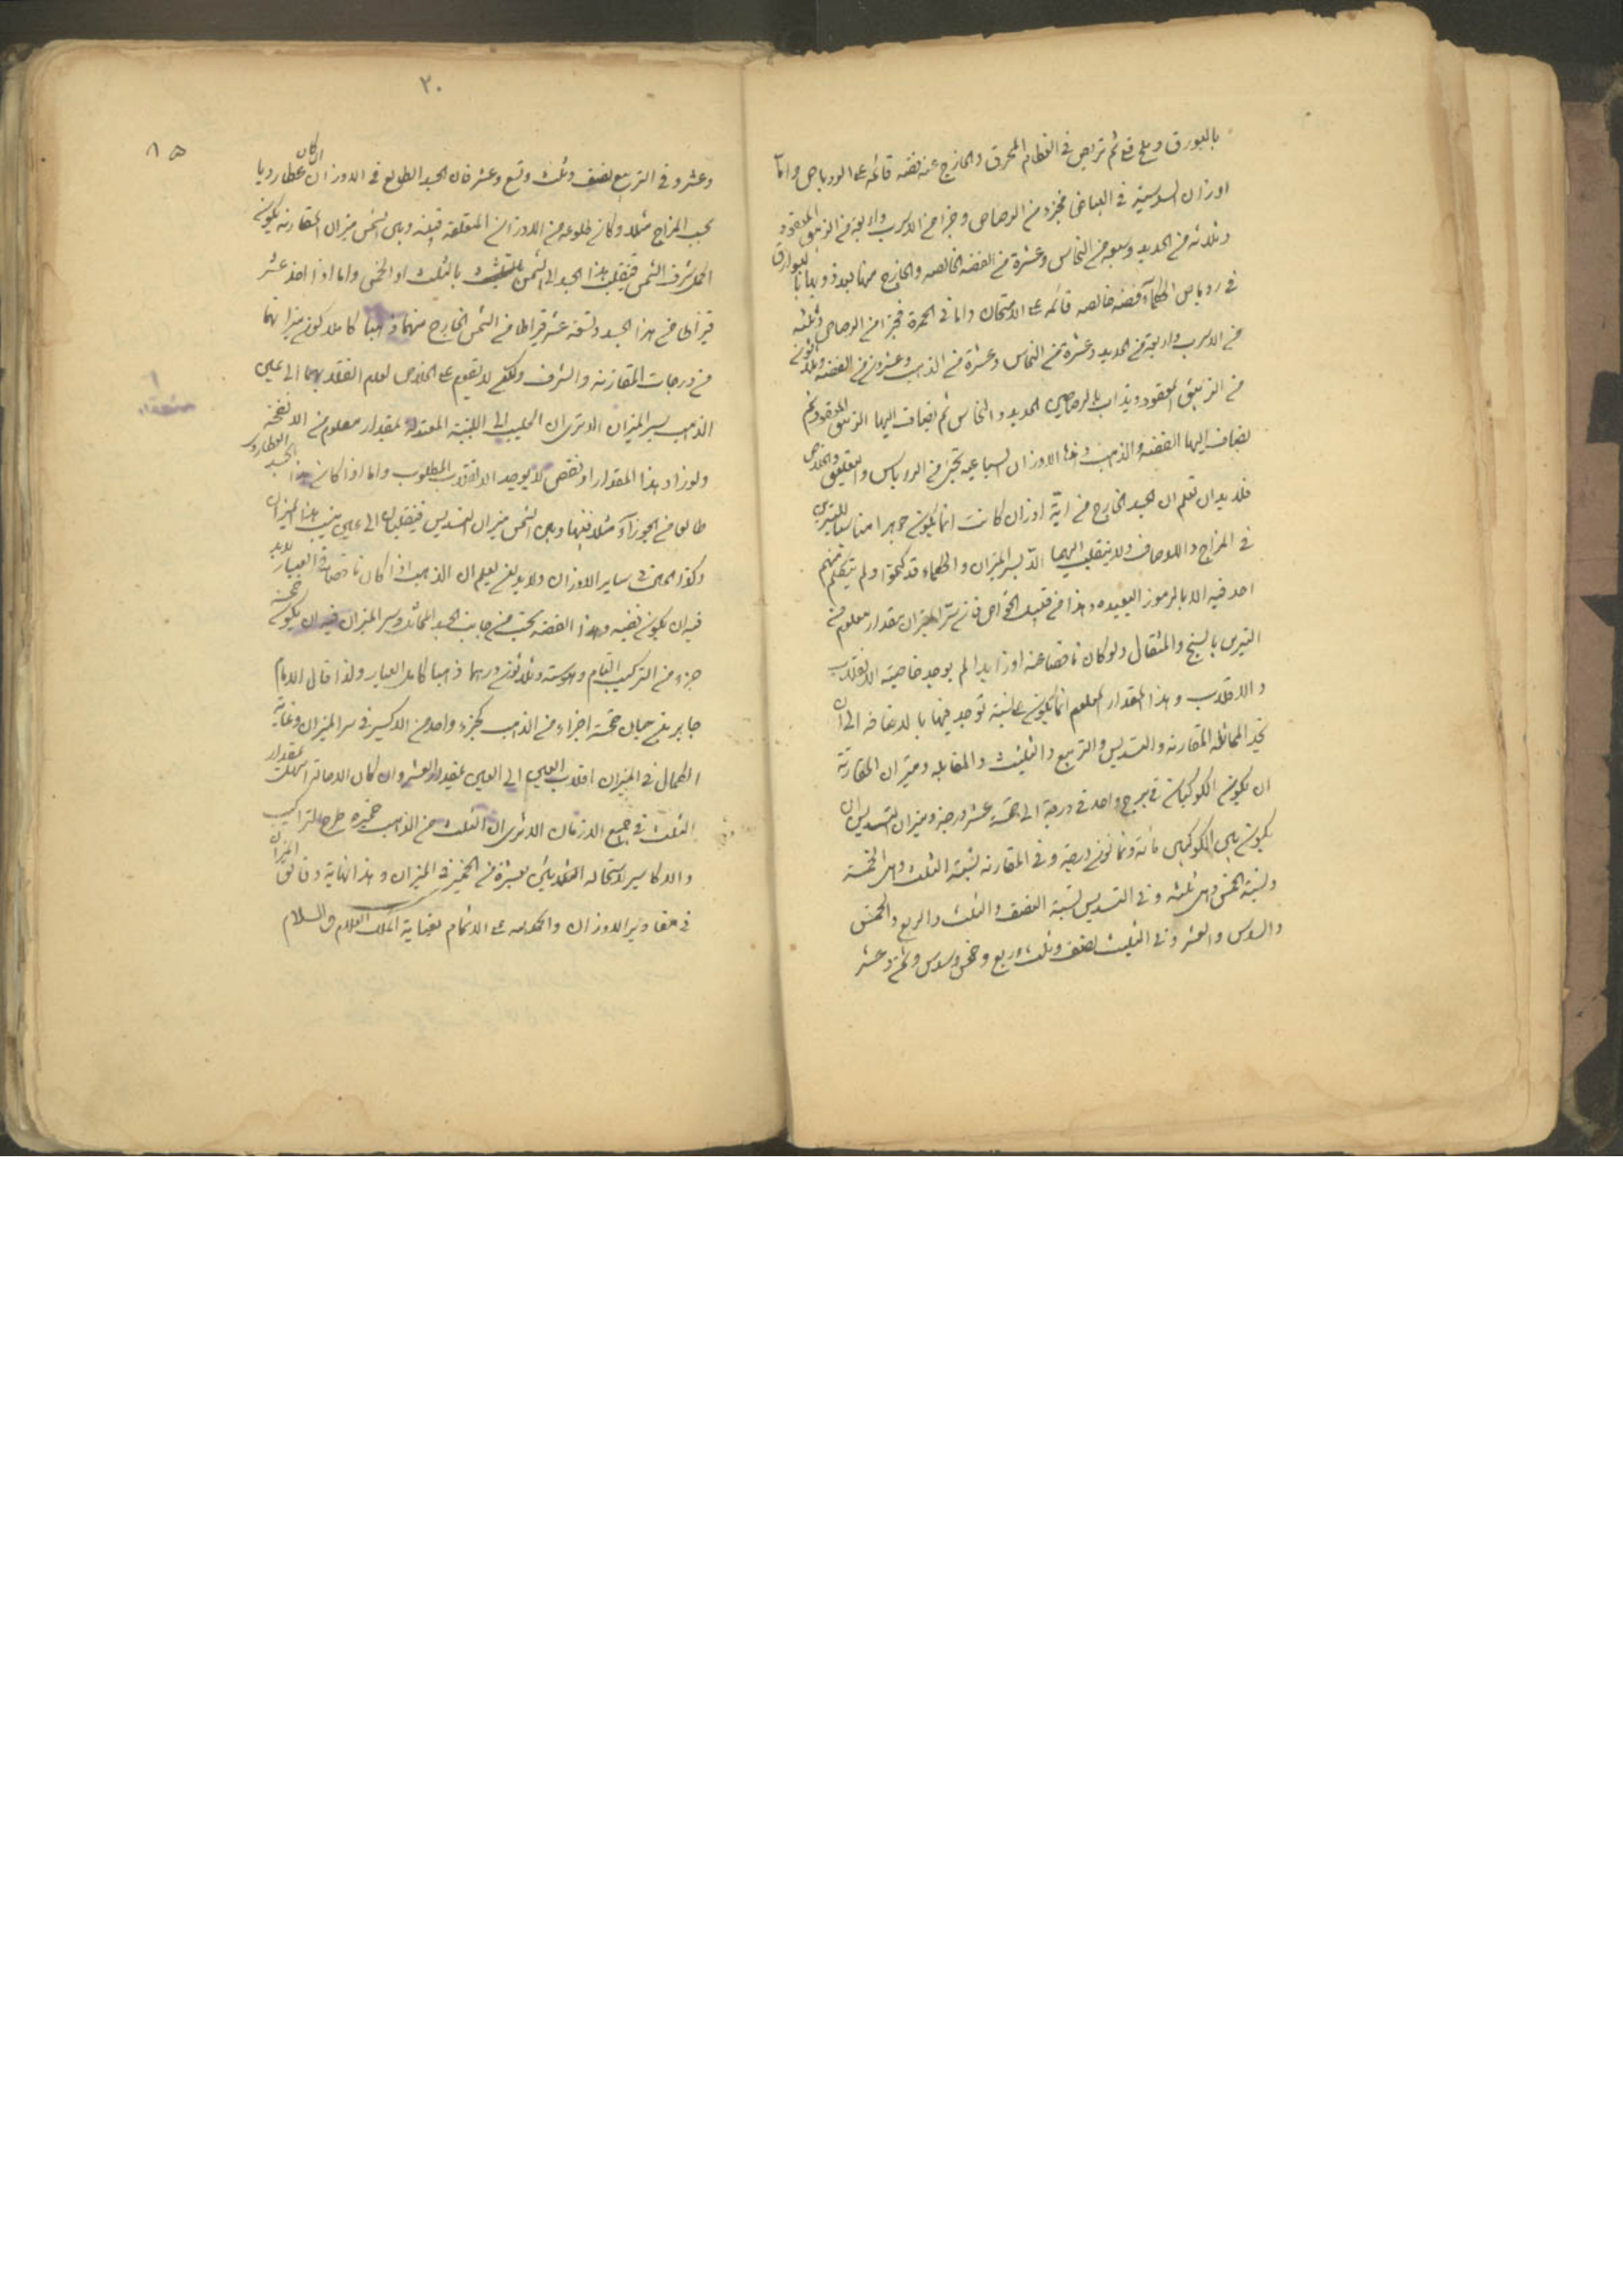 بالبورق وملح قلي ثم تربص في العظام المحرق والخارج عنه فضه قائمة على الروباص واما
اوزان السدسية في البياض فجزء من الرصاص وجزء من الاسرب واربعة من الزيبق المعقود
وثلاثه من الحديد وسبعه من النحاس وعشرة من الفضه الخالصه والخارج منها بعد ذوبها بالبوارق
في روباص الحكمآء فضه خالصه قائمه على الامتحان واما في الحمرة فجزء من الرصاص وثلثه
من الاسرب واربعة من الحديد وعشرة من النحاس وعشرة من الذهب وعشرون من الفضه وثلاثون
من الزيبق المعقود ويذاب بالرصاص الحديد والنحاس ثم يضاف اليها الزيبق المعقود ثم
يضاف اليها الفضه والذهب وهذا الاوزان السباعيه تختبر في الروباس والتعليق والخلاص
فلا بد ان تعلم ان الجسد الخارج من اية اوزان كانت انما يكون جوهرا مناسبا للنيرين
في المزاج والاوصاف ولا ينقلب اليهما الا بسر الميزان والحكماء قد كتموا ولم يتكلم منهم
احد فيه الا بالرموز البعيده وهذا من قبيل الخواص فان سر الميزان بمقدار معلوم من
النيرين بالسنج والمثقال ولو كان ناقصا عنه او زايدا لم يوجد خاصية الانقلاب
والاقلاب وهذا المقدار المعلوم انما يكون على نسبة توجد فيها بالاضافه الى ان
تجد المماثله المقارنه والتسديس والتربيع والتثليث والمقابله وميزان المقارنة
ان يكون الكوكبان في برج واحد في درجة الى خمسة عشر درجة وميزان التسديس ان
يكون بين الكوكبين مائة وثمانون درجة وفي المقارنه نسبة الثلث وهى الخمسة
ونسبة الخمس وهى ثلثه وفي التسديس نسبة النصف والثلث والربع والخمس
والسدس والعشر وفي التثليث نصف وثلث وربع وخمس وسدس وثمن وعشر
٢٠
٨٥
وعشر وفي التربيع نصف وثلث وتسع وعشر فان الجسد الطالع في الاوزان ان كان عطارديا
بحسب المزاج مثلا وكان طلوعه من الاوزان المتعلقة بينه وبين الشمس ميزان المقارنه يكون
الحمل شرف الشمس فينقلب هذا الجسد الى الشمس بالثلث او الخمس واما اذا اخذ عشر
قيراطا من هذا الجسد وتسعة عشر قيراطا من الشمس الخارج منهما ذهبا كاملا كون ميزانهما
من درجات المقارنه والشرف ولكن لا تقوم على الخلاص لعدم انقلابهما الى عين
الذهب بسر الميزان الا ترى ان الحليب الى الجبنية المعتدلة بمقدار معلوم من الانفحة
ولو زاد هذا المقدار او نقص لا يوجد الانقلاب المطلوب واما اذا كان هذا الجسد العطاردي
طالعا من الجوزآء مثلا فبينها وبين الشمس ميزان التسديس فينقلبان الى عين بنسب هذا الميزان
وكذا العمل في ساير الاوزان ولا بد لمن يعلم ان الذهب اذا كان ناقصا من العيار لا بد
فيه ان يكون فضيه وهذا الفضه تحتسب من جانب الجسد المماثل وسر الميزان فيه ان يكون خمسة
جزء من التركيب التام وهو ستة وثلاثون درهما ذهبا كامل العيار ولذا قال الامام
جابر بن حيان خمسة اجزاء من الذهب كجزء واحد من الاكسير في سر الميزان وغاية
الكمال في الميزان اقلاب العين الى العين بمقدار العشر وان كان الاحالة المهلت بمقدار
الثلث في جميع الازمان الا ترى ان الثلث من الذهب خميره طرح التراكيب
والاكاسير لاستحاله الثلاثين بعشرة من الخمير في الميزان وهذا نهاية دقائق الميزان
في مقادير الاوزان والحمد لله على الاتمام بعناية الملك العلام والسلام